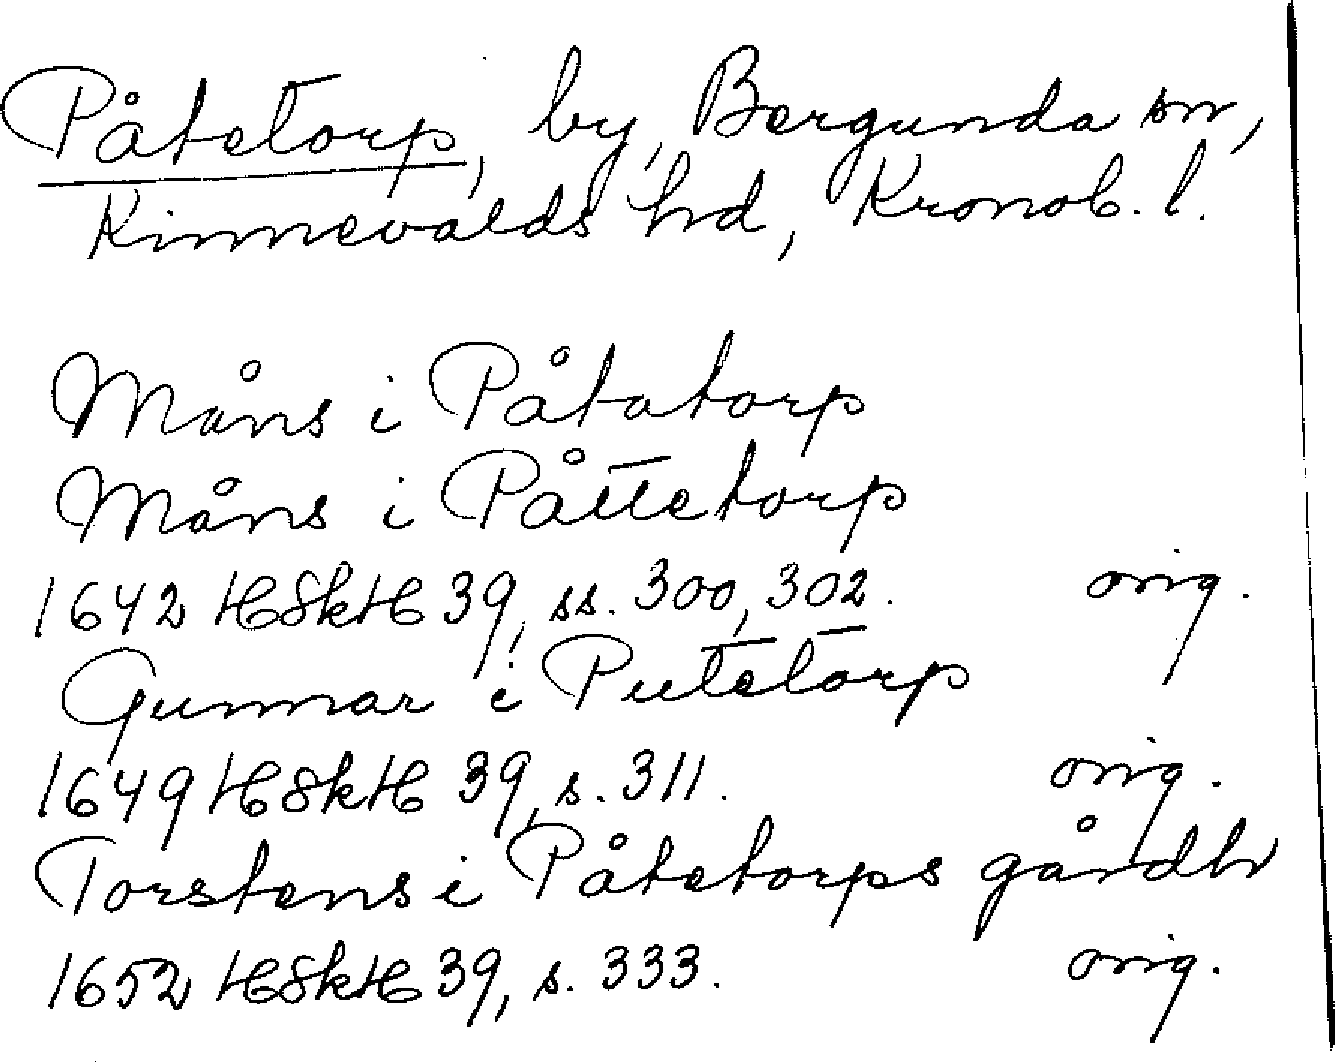 Påtetorp, by, Bergunda sn,
Kinnevalds hd, Kronob. l.
Måns i Påtatorp
Måns i Påttetorp
1642 HSkH 39, ss. 300, 302. orig.
Gunnar i Putetorp
1649 HSkH 39, s. 311. orig.
Torstens i Påtetorps gårdh
1652 HSkH 39, s. 333. orig.